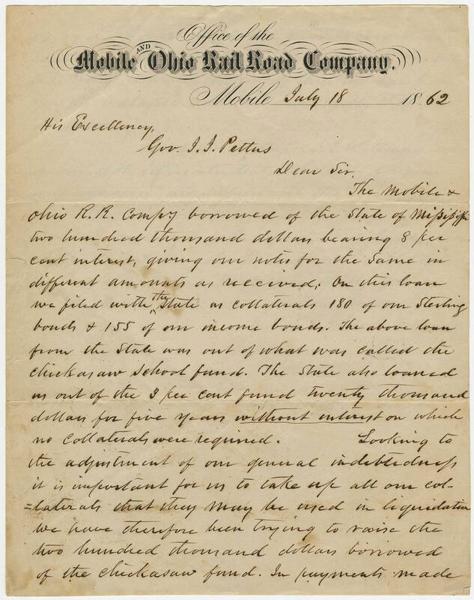 Office of the
Mobile AND Ohio Rail Road Company.
Mobile July 18 1862
His Excellency,
Gov. J. J. Pettus
Dear Sir,
The Mobile &
Ohio R.R. Compy borrowed of the State of Missippi
two hundred thousand dollars bearing 8 per
cent interest, giving our notes for the same in
different amounts as received; On this loan
we filed with the State as collaterals 180 of our Sterling
bonds & 155 of our income bonds. The above loan
from the State was out of what was called the
chickasaw School fund. The State also loaned
us out of the 3 per cent fund twenty thousand
dollars for five years without interest on which
no collaterals were required. Looking to
the adjustment of our general indebtedness
it is important for us to take up all our col-
=laterals that they may be used in liquidation
we have therefore been trying to raise the
two hundred thousand dollars borrowed
of the chickasaw fund. In payments made